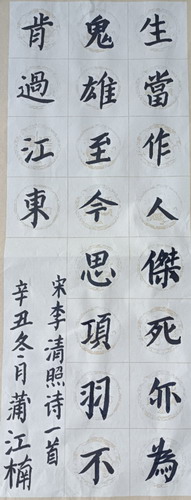 生當作人傑死亦為
鬼雄至今思項羽不
肯過江東
宋李清照诗一首
辛丑冬月蒲江楠